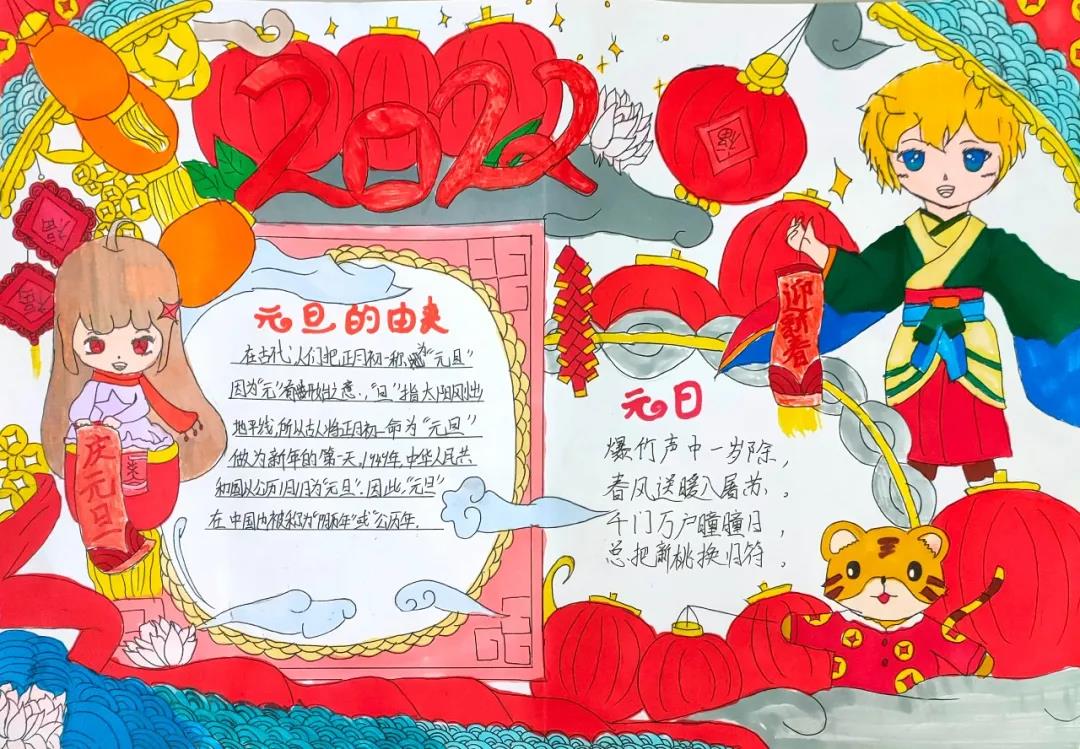 2022
福
福
福
迎新春
庆元旦
元旦的由来
在古代,人们把正月初一称为“元旦”
因为“元”有开始之意,“旦”指太阳刚出
地平线,所以古人将正月初一命为“元旦”
做为新年的第一天,1949年,中华人民共
和国以公历1月1日为“元旦”.因此,“元旦”
在中国也被称为“阳历年”或“公历年.
元日
爆竹声中一岁除,
春风送暖入屠苏。
千门万户曈曈日,
总把新桃换旧符。